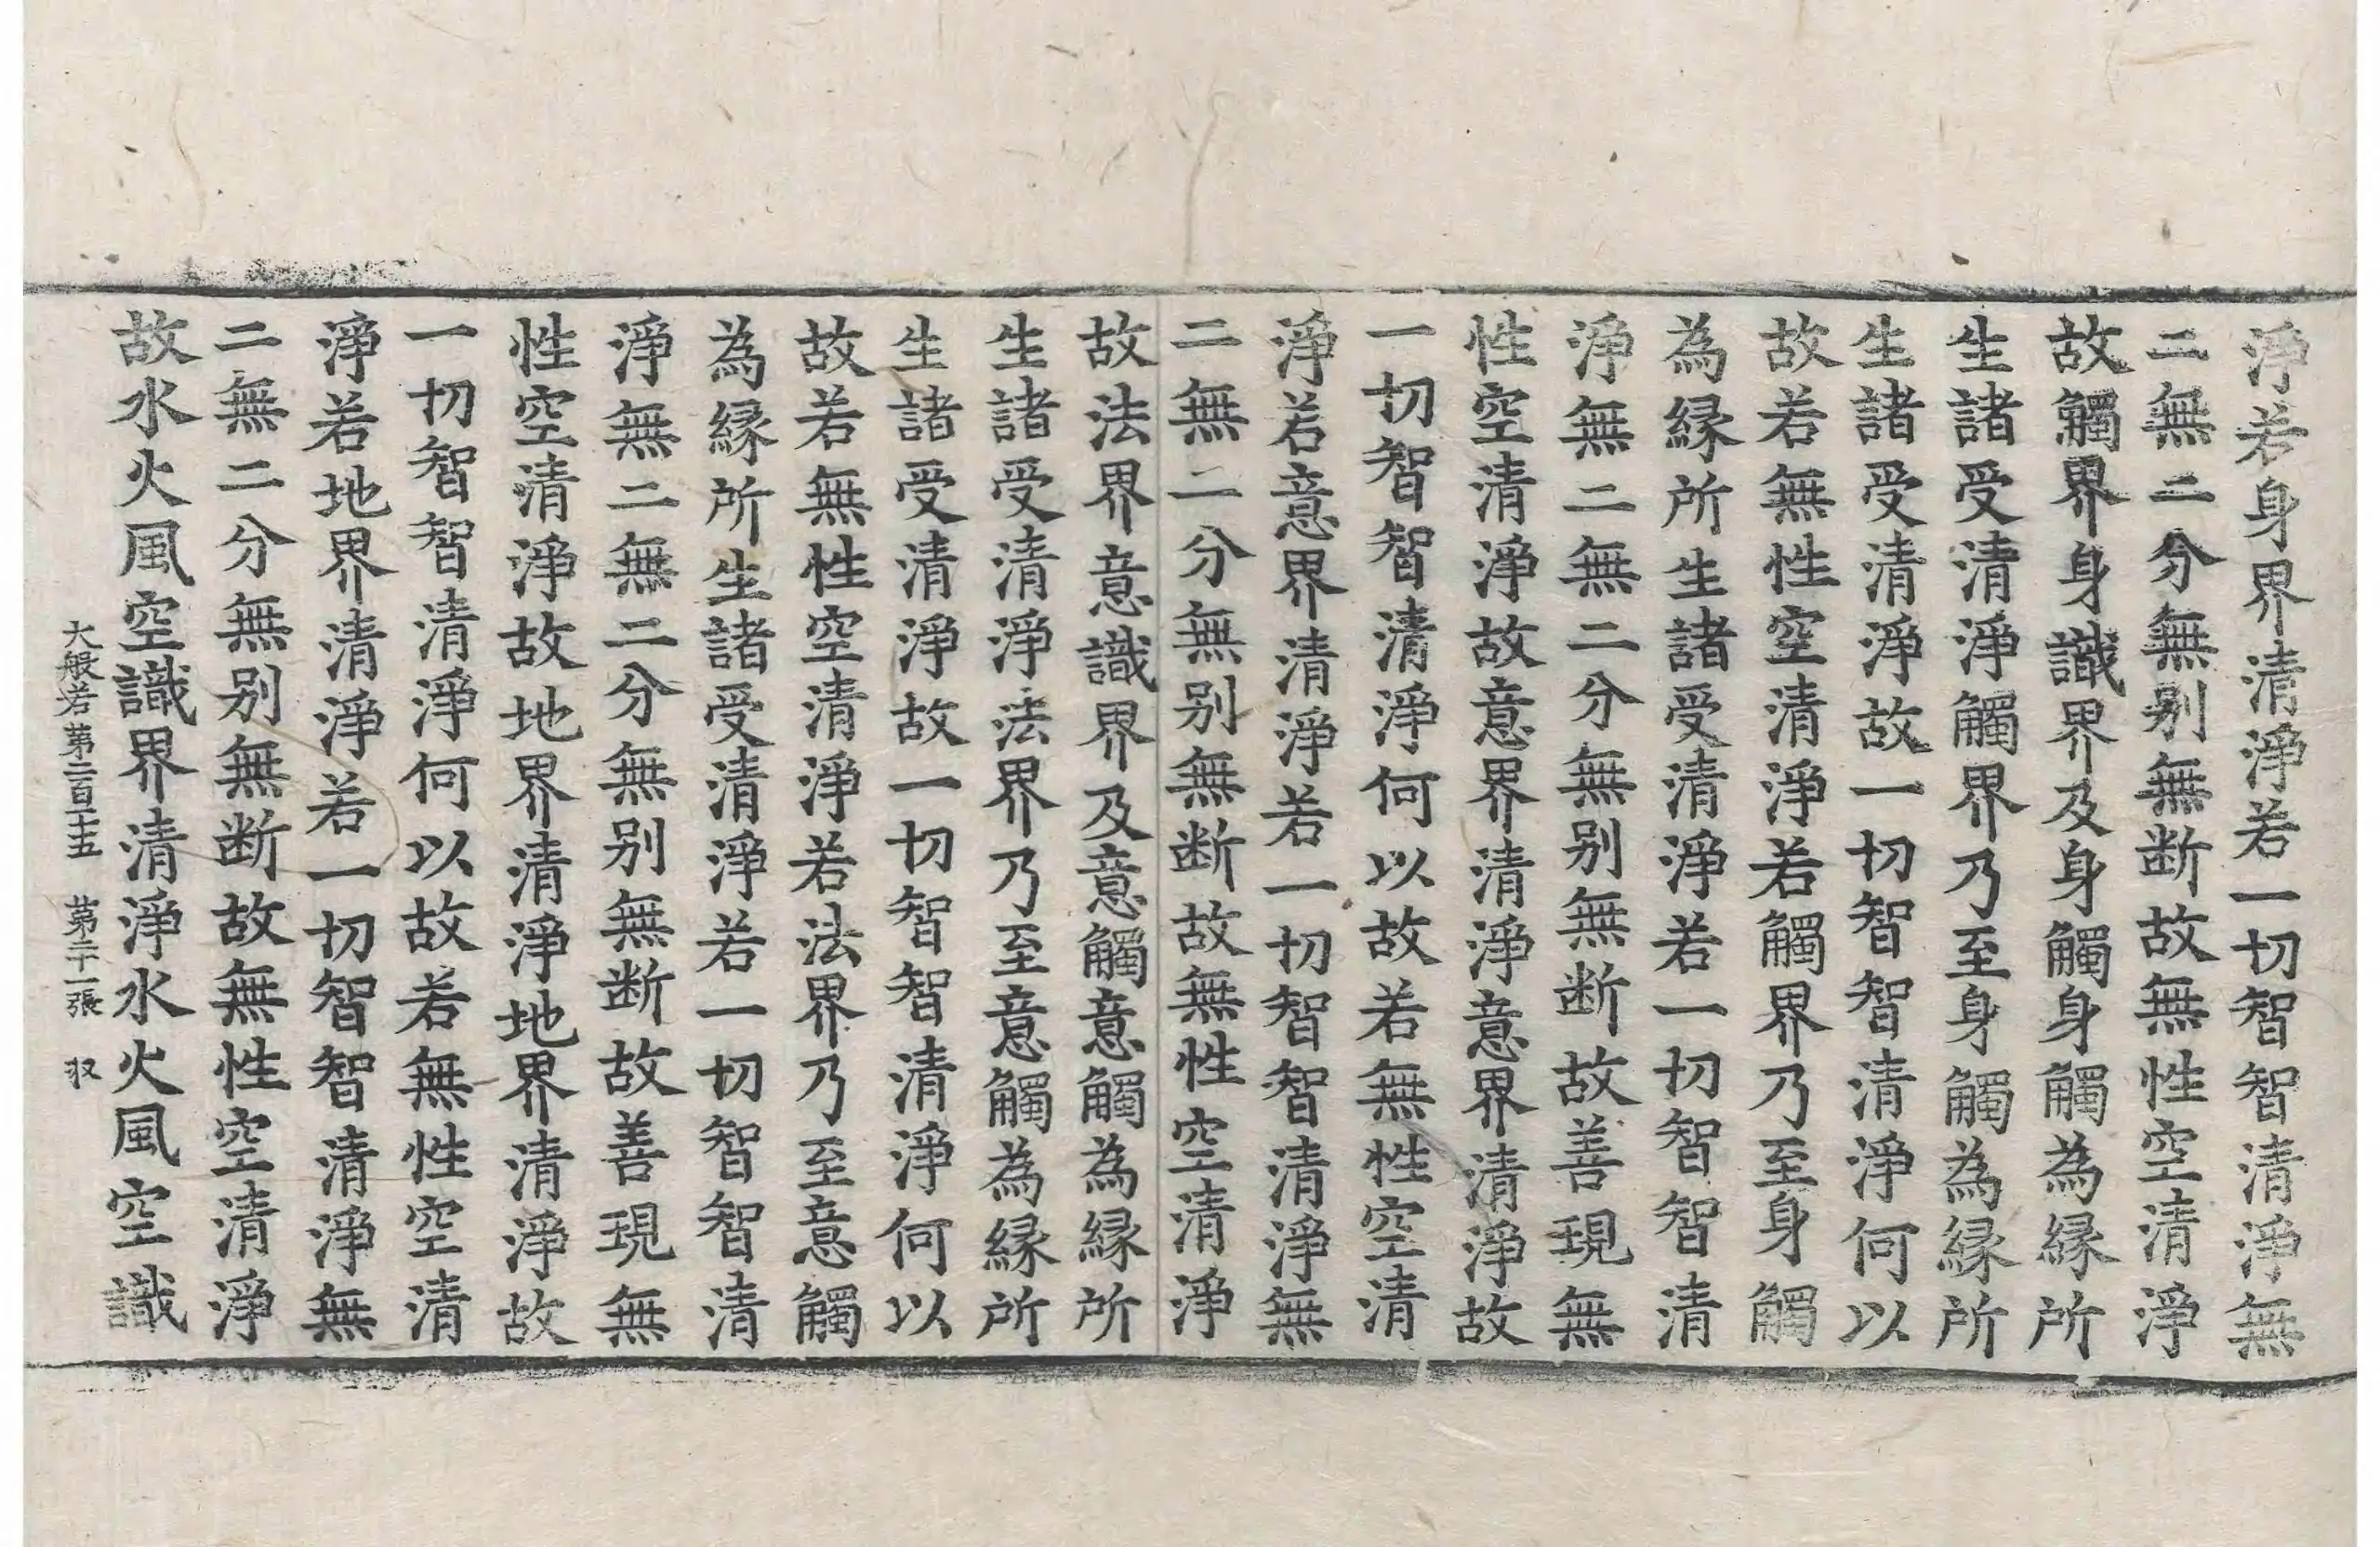 淨若身界清淨若一切智智清淨無
二無二分無别無断故無性空清淨
故觸界身識界及身觸身觸為縁所
生諸受清淨觸界乃至身觸為縁所
生諸受清淨故一切智智清淨何以
故若無性空清淨若觸界乃至身觸
為縁所生諸受清淨若一切智智清
淨無二無二分無别無断故善現無
性空清淨故意界清淨意界清淨故
一切智智清淨何以故若無性空清
淨若意界清淨若一切智智清淨無
二無二分無别無断故無性空清淨
故法界意識界及意觸意觸為縁所
生諸受清淨法界乃至意觸為縁所
生諸受清淨故一切智智清淨何以
故若無性空清淨若法界乃至意觸
為縁所生諸受清淨若一切智智清
淨無二無二分無别無断故善現無
性空清淨故地界清淨地界清淨故
一切智智清淨何以故若無性空清
淨若地界清淨若一切智智清淨無
二無二分無别無断故無性空清淨
故水火風空識界清淨水火風空識
大般若第二百一十五 第二十一張 収